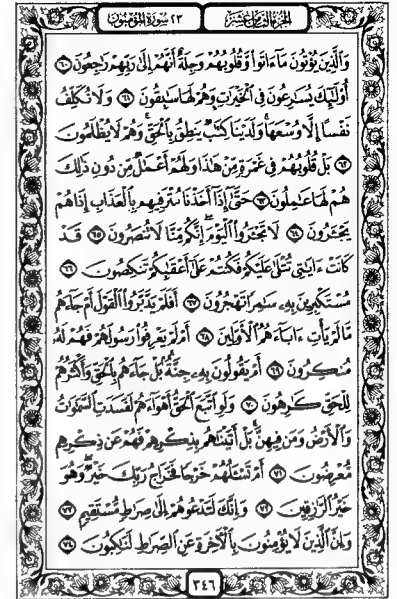 الجزء الثامن عشر
٢٣ سورة المؤمنون
وَالَّذِينَ يُؤْتُونَ مَا ءَاتَوا وَّقُلُوبُهُمْ وَجِلَةٌ أَنَّهُمْ إِلَىٰ رَبِّهِمْ رَاجِعُونَ ٦٠
أُوْلَٰئِكَ يُسَارِعُونَ فِي الْخَيْرَاتِ وَهُمْ لَهَا سَابِقُونَ ٦١ وَلَا نُكَلِّفُ
نَفْسًا إِلَّا وُسْعَهَا وَلَدَيْنَا كِتَابٌ يَنطِقُ بِالْحَقِّ وَهُمْ لَا يُظْلَمُونَ
٦٢ بَلْ قُلُوبُهُمْ فِي غَمْرَةٍ مِّنْ هَٰذَا وَلَهُمْ أَعْمَالٌ مِّن دُونِ ذَٰلِكَ
هُمْ لَهَا عَامِلُونَ ٦٣ حَتَّىٰ إِذَا أَخَذْنَا مُتْرَفِيهِم بِالْعَذَابِ إِذَا هُمْ
يَجْـَٔرُونَ ٦٤ لَا تَجْـَٔرُوا الْيَوْمَ إِنَّكُم مِّنَّا لَا تُنصَرُونَ ٦٥ قَدْ
كَانَتْ ءَايَاتِي تُتْلَىٰ عَلَيْكُمْ فَكُنتُمْ عَلَىٰ أَعْقَابِكُمْ تَنكِصُونَ ٦٦
مُسْتَكْبِرِينَ بِهِ سَامِرًا تَهْجُرُونَ ٦٧ أَفَلَمْ يَدَّبَّرُوا الْقَوْلَ أَمْ جَاءَهُم
مَّا لَمْ يَأْتِ ءَابَاءَهُمُ الْأَوَّلِينَ ٦٨ أَمْ لَمْ يَعْرِفُوا رَسُولَهُمْ فَهُمْ لَهُ
مُنكِرُونَ ٦٩ أَمْ يَقُولُونَ بِهِ جِنَّةٌ بَلْ جَاءَهُم بِالْحَقِّ وَأَكْثَرُهُمْ
لِلْحَقِّ كَارِهُونَ ٧٠ وَلَوِ اتَّبَعَ الْحَقُّ أَهْوَاءَهُمْ لَفَسَدَتِ السَّمَاوَاتُ
وَالْأَرْضُ وَمَن فِيهِنَّ بَلْ أَتَيْنَاهُم بِذِكْرِهِمْ فَهُمْ عَن ذِكْرِهِم
مُّعْرِضُونَ ٧١ أَمْ تَسْـَٔلُهُمْ خَرْجًا فَخَرَاجُ رَبِّكَ خَيْرٌ وَهُوَ
خَيْرُ الرَّازِقِينَ ٧٢ وَإِنَّكَ لَتَدْعُوهُمْ إِلَىٰ صِرَاطٍ مُّسْتَقِيمٍ ٧٣
وَإِنَّ الَّذِينَ لَا يُؤْمِنُونَ بِالْآخِرَةِ عَنِ الصِّرَاطِ لَنَاكِبُونَ ٧٤
٣٤٦